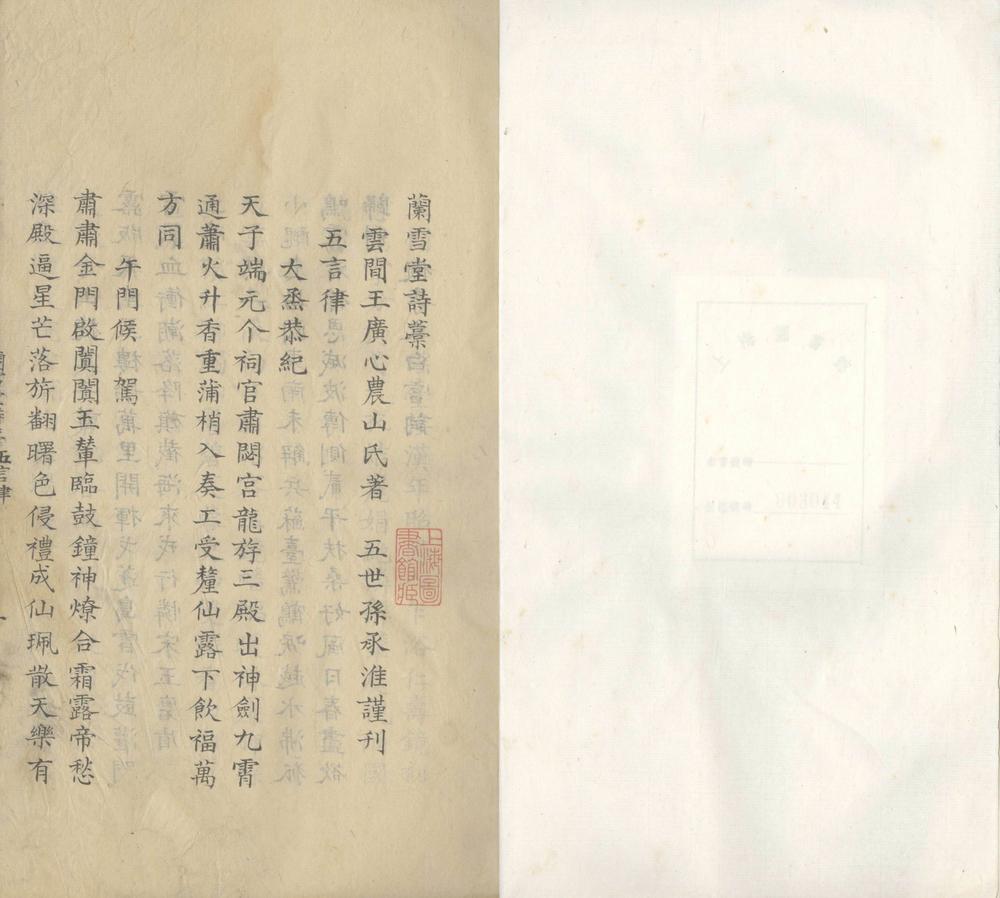 蘭雪堂詩藁
雲間王廣心農山氏著 五世孫承淮謹刊
五言律
大烝恭紀
天子端元个祠官肅閟宮龍斿三殿出神劍九霄
通蕭火升香重蒲梢入奏工受釐仙露下飲福萬
方同
午門候駕
肅肅金門啟闐闐玉輦臨鼓鐘神燎合霜露帝愁
深殿逼星芒落旂翻曙色侵禮成仙珮散天樂有
五言律
上海圖書館藏